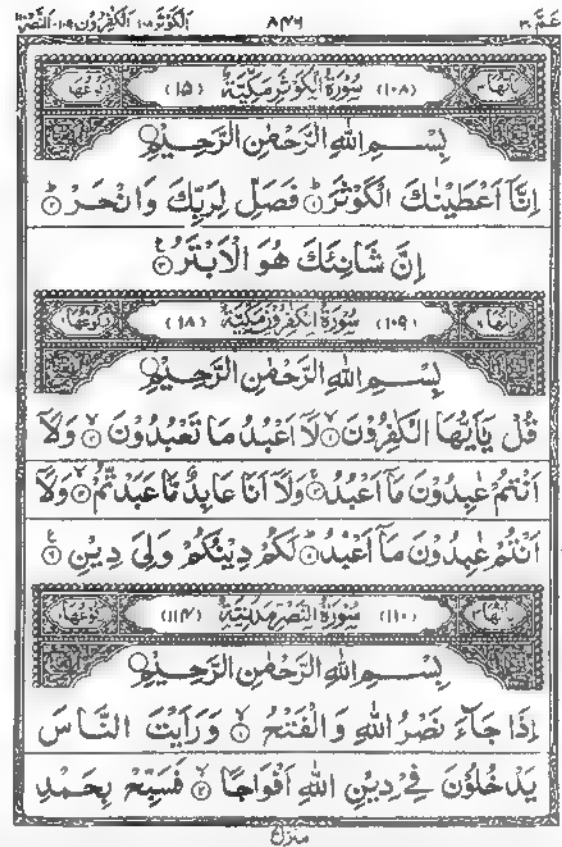 عَمَّ ٣٠ ٨٤٦ اَلْكَوْثَر ١٠٨ اَلْكٰفِرُوْن ١٠٩ اَلنَّصْر ١١٠
اٰيَاتُهَا ٣ (١٠٨) سُوْرَةُ الْكَوْثَرِ مَكِّيَّةٌ (١٥) رُكُوْعُهَا ١
بِسْمِ اللهِ الرَّحْمٰنِ الرَّحِيْمِ
اِنَّاۤ اَعْطَيْنٰكَ الْكَوْثَرَ ؕ ۝١ فَصَلِّ لِرَبِّكَ وَانْحَرْ ؕ ۝٢
اِنَّ شَانِئَكَ هُوَ الْاَبْتَرُ ۝٣ ع
اٰيَاتُهَا ٦ (١٠٩) سُوْرَةُ الْكٰفِرُوْنَ مَكِّيَّةٌ (١٨) رُكُوْعُهَا ١
بِسْمِ اللهِ الرَّحْمٰنِ الرَّحِيْمِ
قُلْ يٰۤاَيُّهَا الْكٰفِرُوْنَ ۙ ۝١ لَاۤ اَعْبُدُ مَا تَعْبُدُوْنَ ۙ ۝٢ وَلَاۤ
اَنْتُمْ عٰبِدُوْنَ مَاۤ اَعْبُدُ ۚ ۝٣ وَلَاۤ اَنَا عَابِدٌ مَّا عَبَدْتُّمْ ۙ ۝٤ وَلَاۤ
اَنْتُمْ عٰبِدُوْنَ مَاۤ اَعْبُدُ ؕ ۝٥ لَكُمْ دِيْنُكُمْ وَلِيَ دِيْنِ ۝٦ ع
اٰيَاتُهَا ٣ (١١٠) سُوْرَةُ النَّصْرِ مَدَنِيَّةٌ (١١٤) رُكُوْعُهَا ١
بِسْمِ اللهِ الرَّحْمٰنِ الرَّحِيْمِ
اِذَا جَآءَ نَصْرُ اللهِ وَالْفَتْحُ ۙ ۝١ وَرَاَيْتَ النَّاسَ
يَدْخُلُوْنَ فِيْ دِيْنِ اللهِ اَفْوَاجًا ۙ ۝٢ فَسَبِّحْ بِحَمْدِ